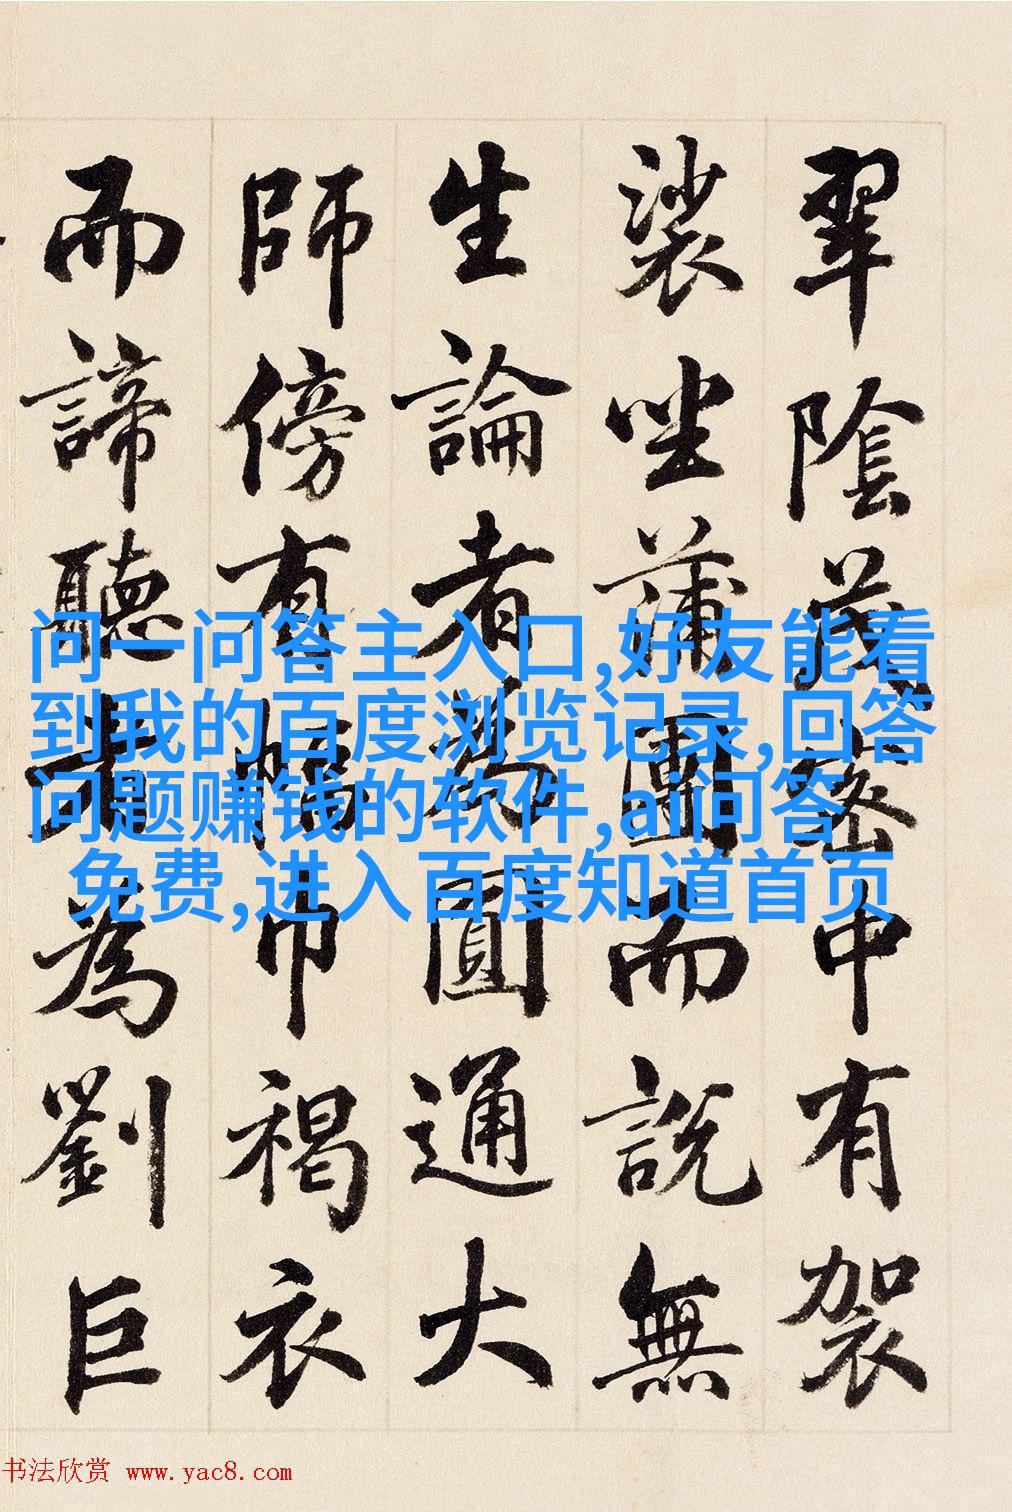 翠陰茂密中有袈
裟坐蒲團而說無
生論者為圓通大
師傍有幅巾褐衣
而諦聽者為劉巨
问一问答主入口,好友能看
到我的百度浏览记录,回答
问题赚钱的软件,ai问答
免费,进入百度知道首页
书法欣赏 www.yac8.com